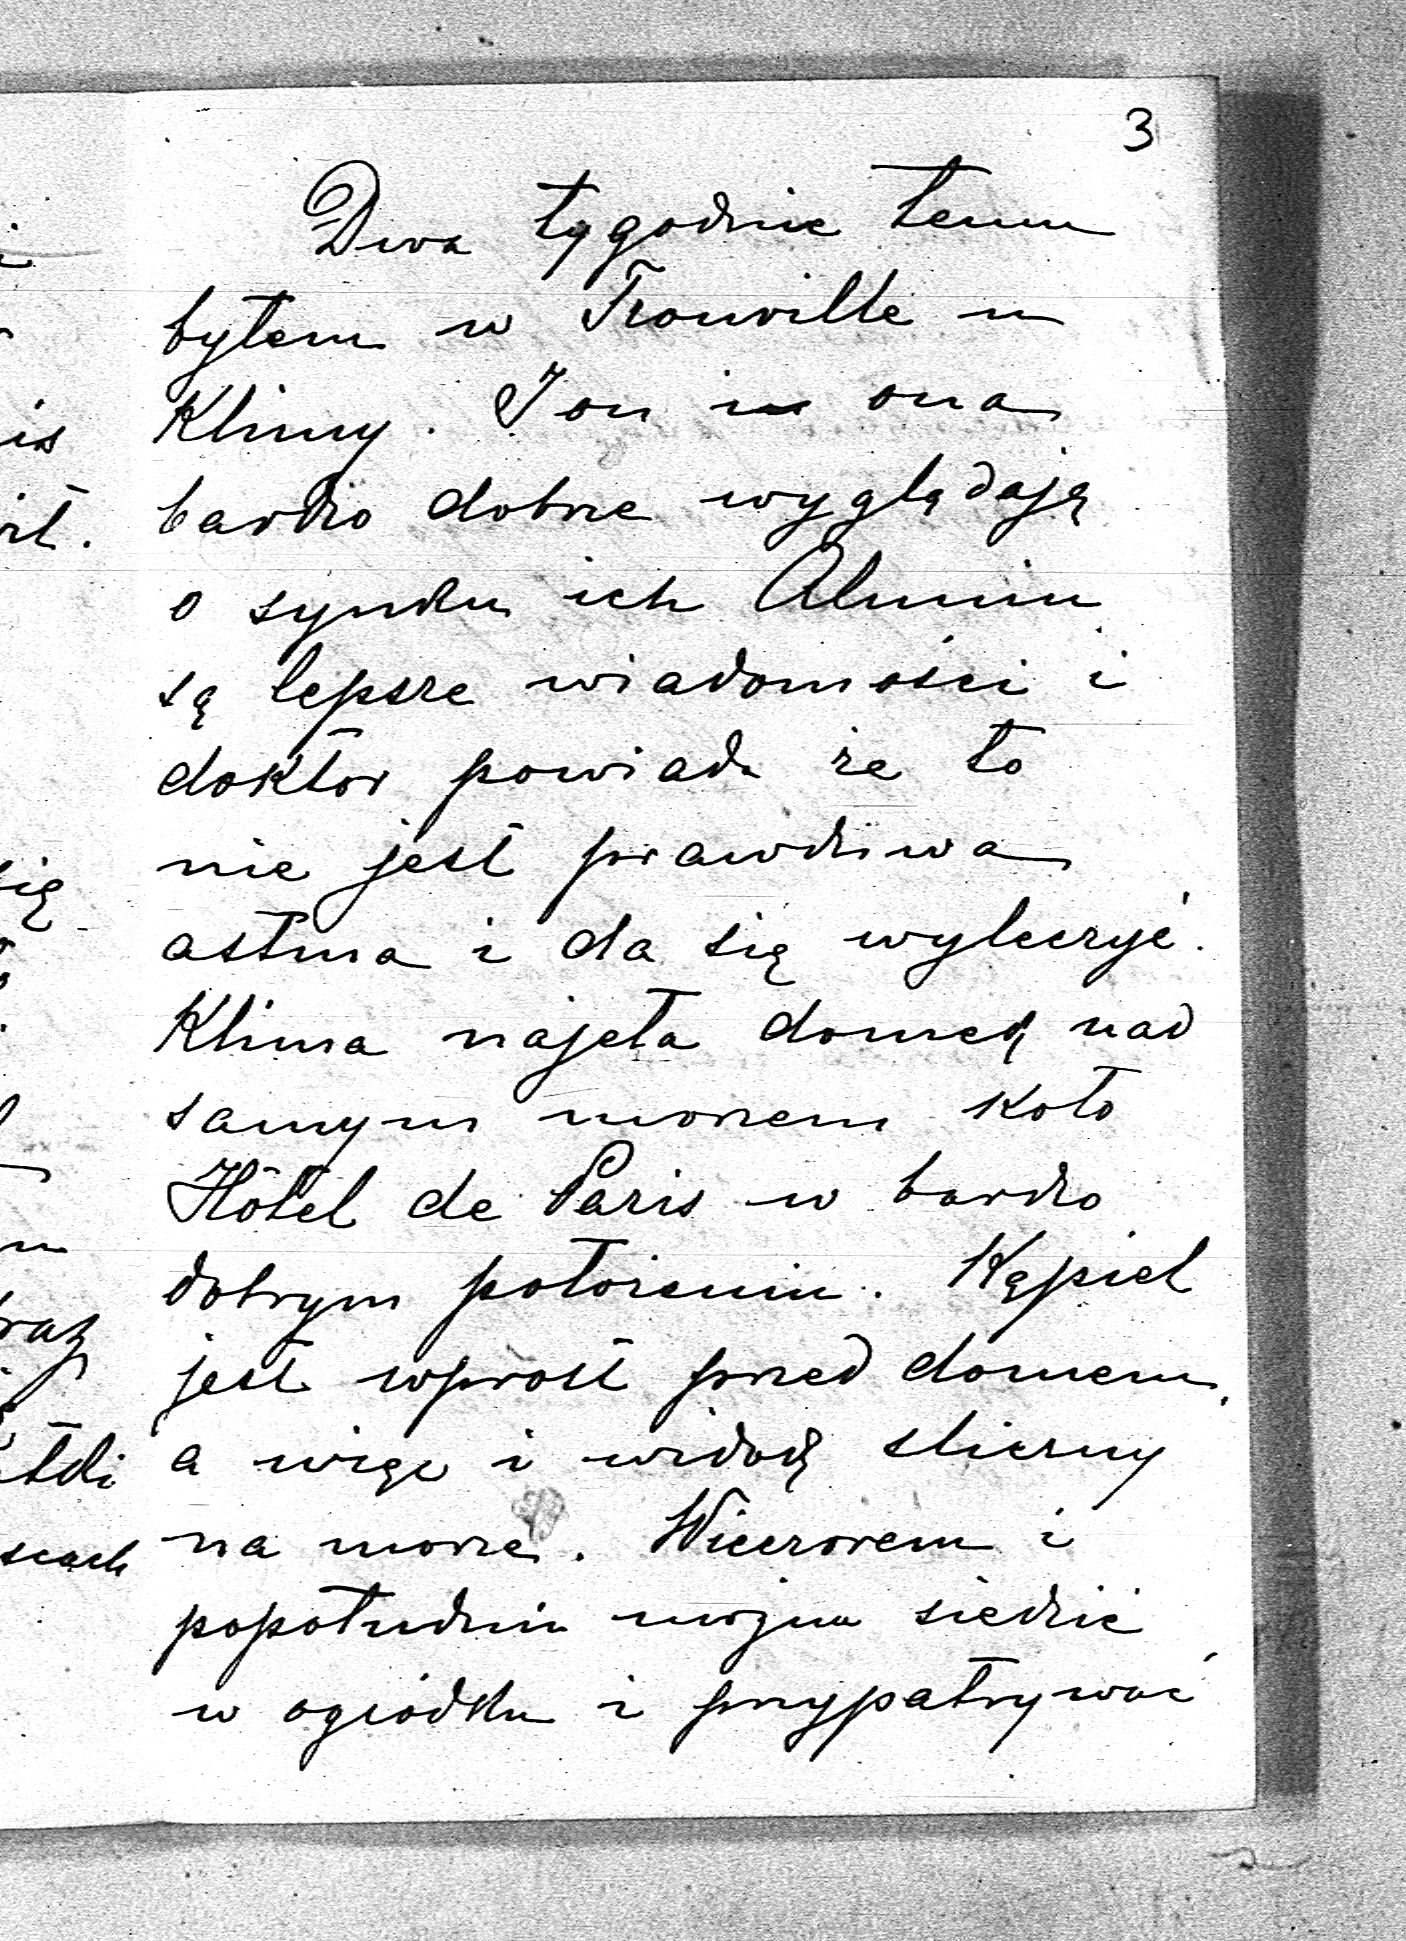 3
Dwa tygodnie temu
byłem w Trouville u
Klimy. I on i ona
bardzo dobrze wyglądają
o synku ich Aluniu
są lepsze wiadomości i
doktor powiada że to
nie jest prawdziwa
astma i da się wyleczyć.
Klima najęła domek nad
samym morzem koło
Hôtel de Paris w bardzo
dobrym położeniu. Kąpiel
jest wprost przed domem,
a więc i widok śliczny
na morze. Wieczorem i
popołudniu można siedzić
w ogródku i przypatrywać
is
się
raz